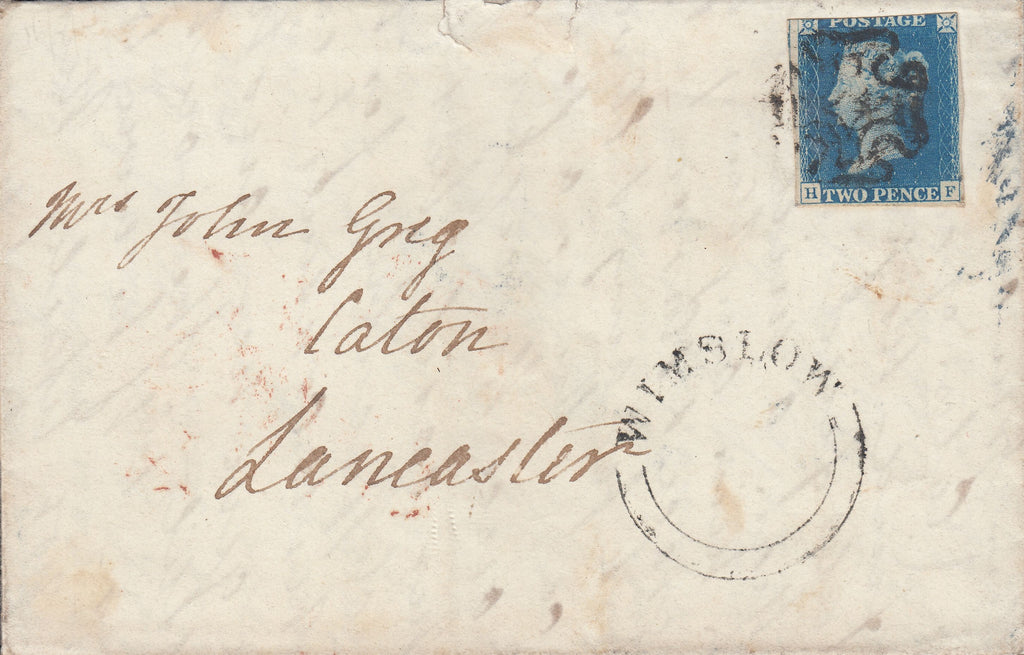 POSTAGE
H TWO PENCE F
Mrs John Greg
Caton
Lancaster
WIMSLOW